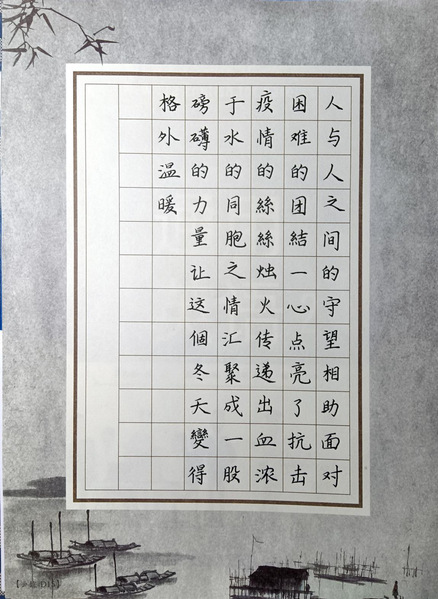 人与人之间的守望相助面对
困难的团結一心点亮了抗击
疫情的絲絲烛火传递出血浓
于水的同胞之情汇聚成一股
磅礴的力量让这個冬天變得
格外温暖